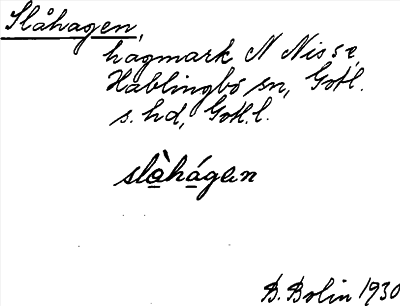 Slåhagen,
hagmark N Nisse,
Hablingbo sn, Gotl.
s. hd, Gotl. l.
slàhágen
B. Bolin 1930